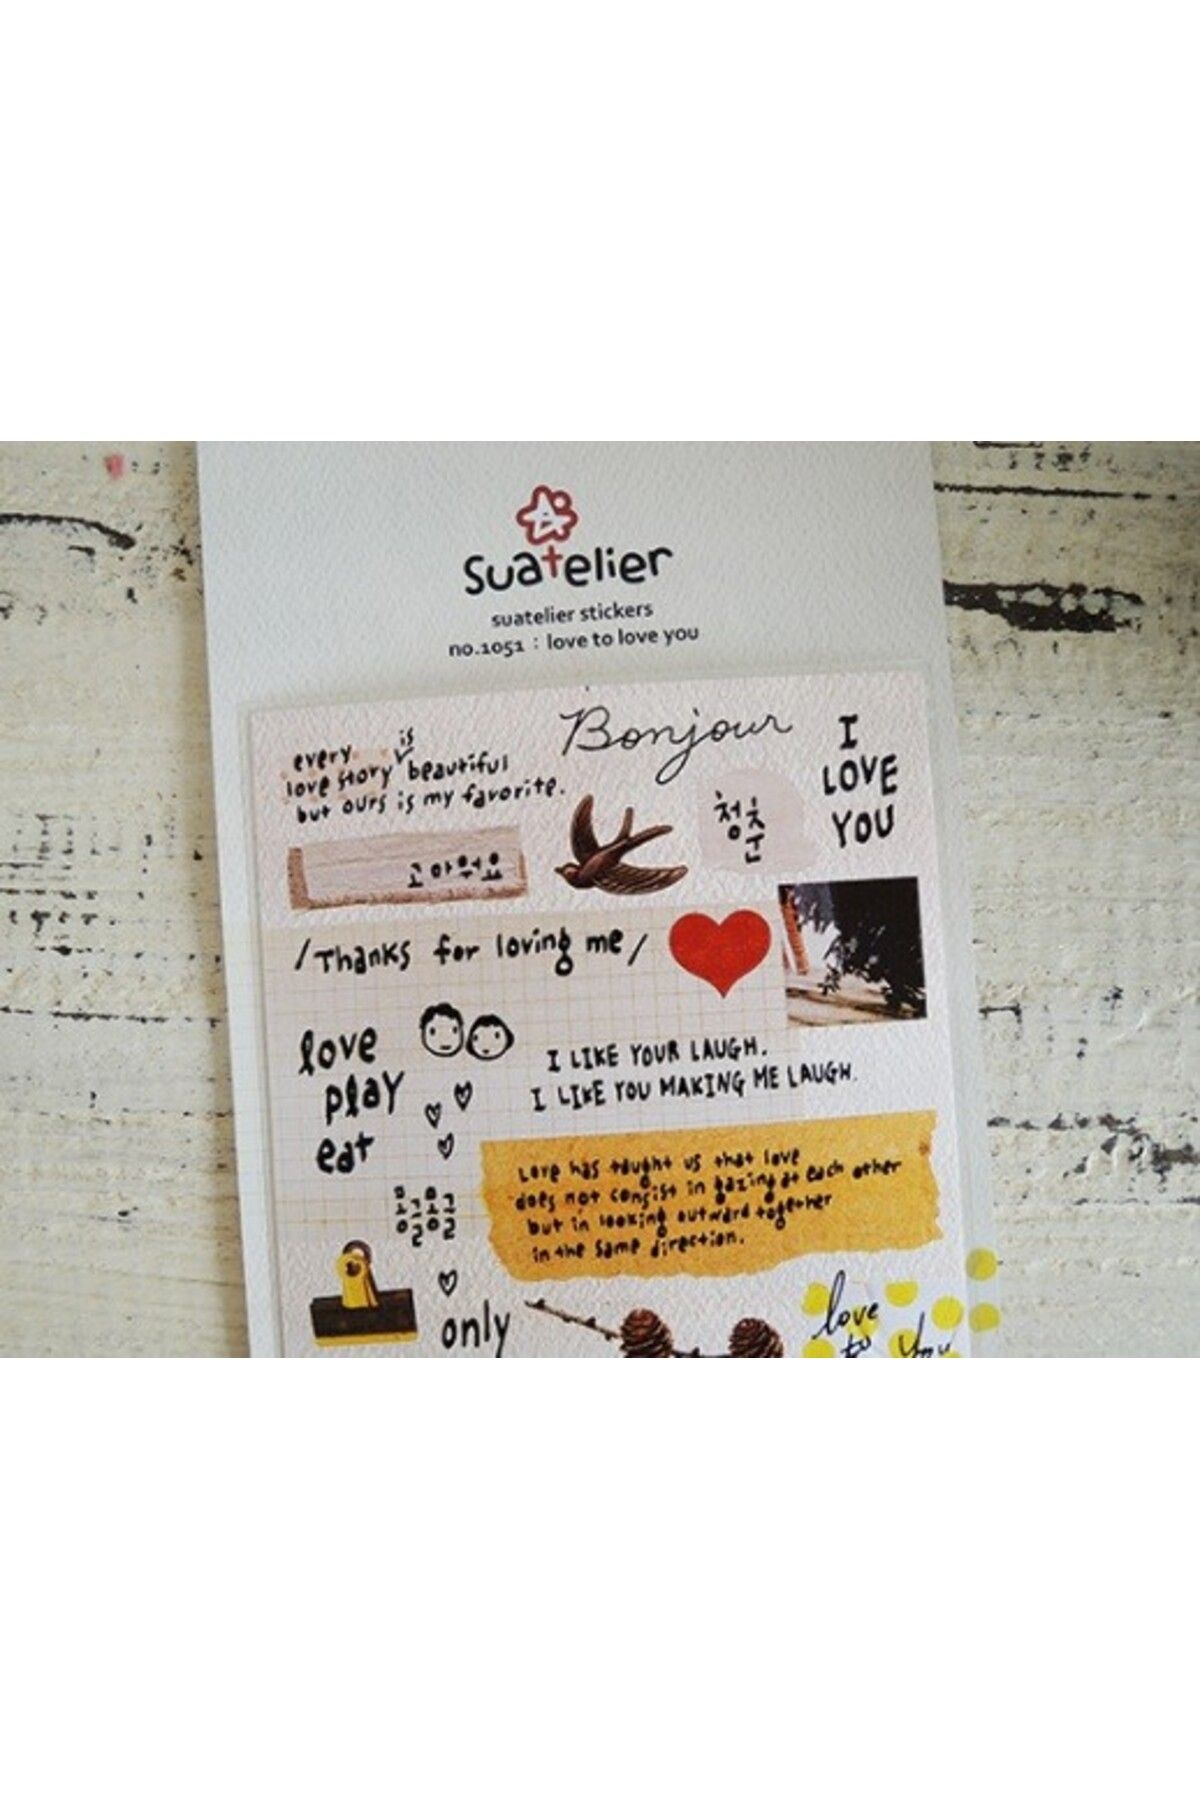 suatelier
suatelier stickers
no.1051 : love to love you
Bonjour
every is
love story beautiful
but ours is my favorite.
I
LOVE
YOU
청춘
고마워요
/Thanks for loving me/
love
play
eat
I LIKE YOUR LAUGH.
I LIKE YOU MAKING ME LAUGH.
Love has taught us that love
does not consist in gazing at each other
but in looking outward together
in the same direction.
only
love
to you